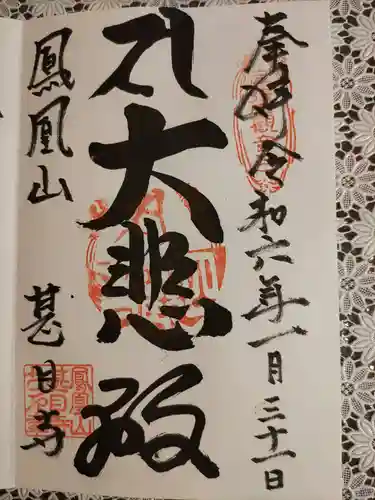 奉拝 令和六年一月三十一日
大悲殿
鳳凰山 甚目寺
鳳凰山
甚目寺